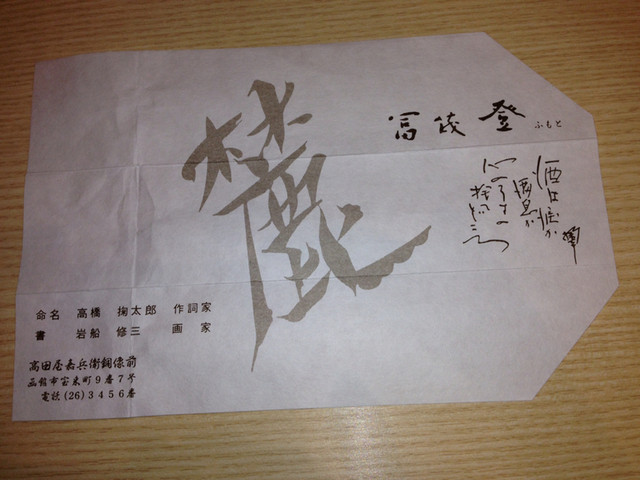 冨茂登 ふもと
麓
酒は涙か
溜息か
心のうさの
捨てどころ
命名 高橋 掬太郎 作詞家
書 岩船 修三 画家
高田屋嘉兵衛銅像前
函館市宝来町9番7号
電話(26)3456番